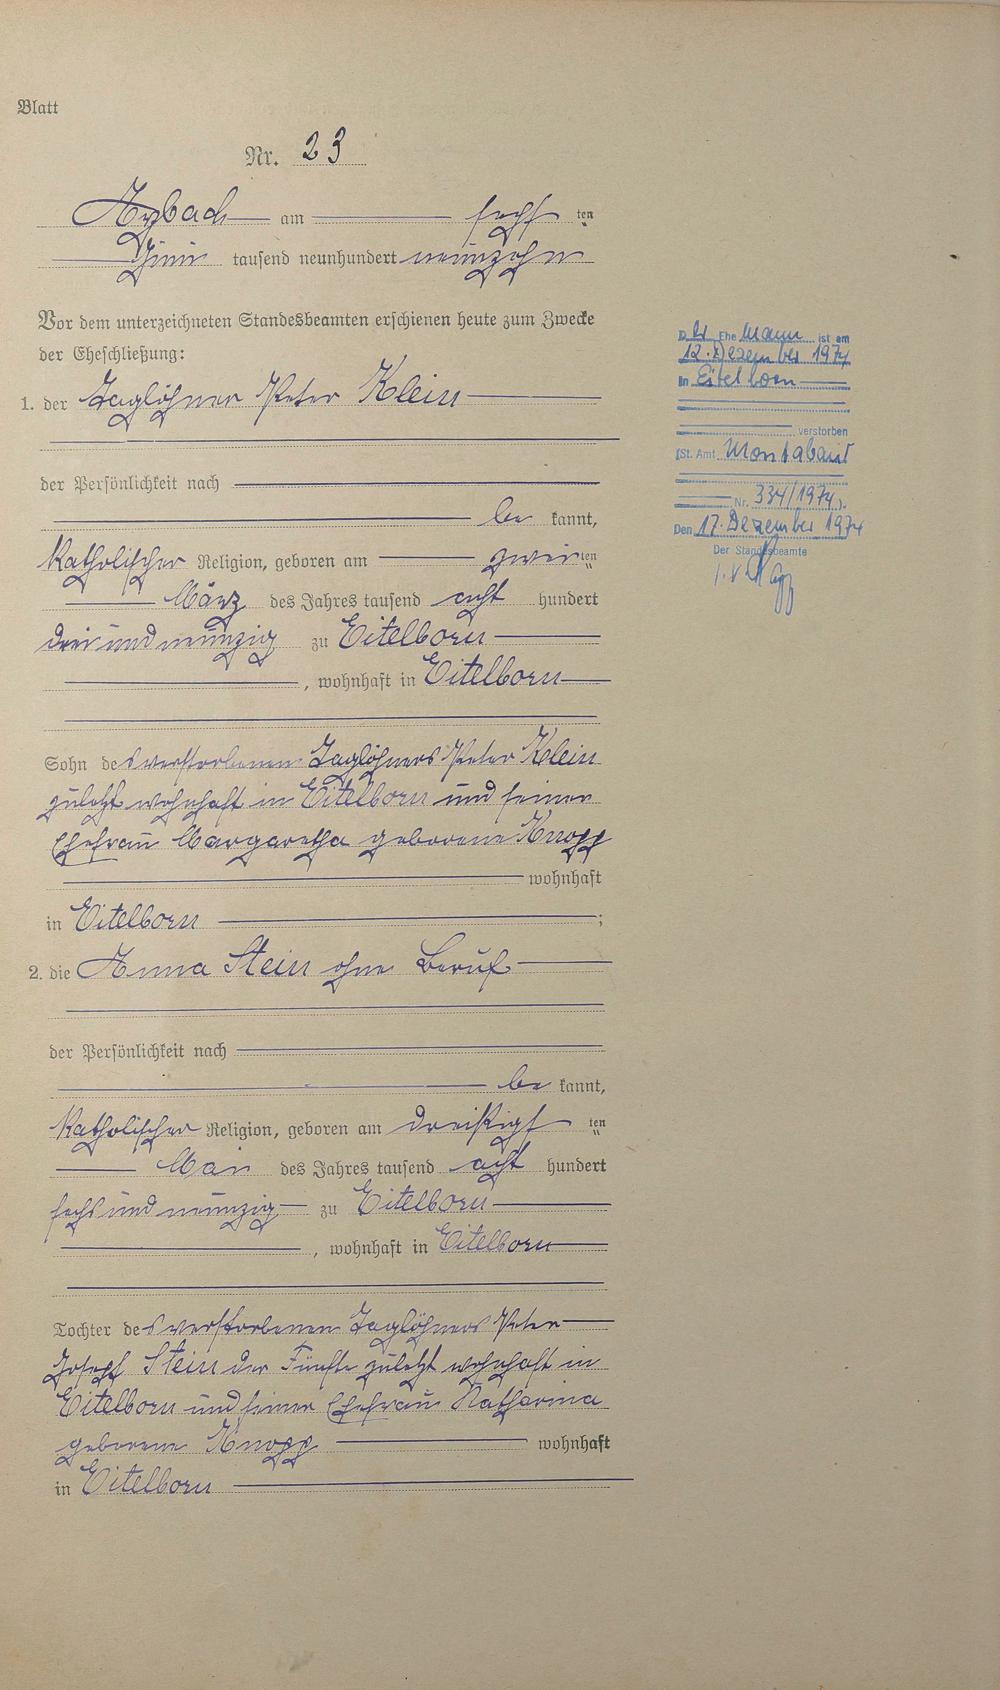 Blatt
Nr. 23
Arzbach am sechsten
Juni tausend neunhundert neunzehn
Vor dem unterzeichneten Standesbeamten erschienen heute zum Zwecke
der Eheschließung:
1. der Taglöhner Peter Klein
der Persönlichkeit nach
be kannt,
katholischer Religion, geboren am zweiten
März des Jahres tausend acht hundert
drei und neunzig zu Eitelborn
, wohnhaft in Eitelborn
Sohn des verstorbenen Taglöhners Peter Klein
zuletzt wohnhaft in Eitelborn und seiner
Ehefrau Margaretha geborene Knopp
wohnhaft
in Eitelborn ;
2. die Anna Stein ohne Beruf
der Persönlichkeit nach
be kannt,
katholischer Religion, geboren am dreißigsten
Mai des Jahres tausend acht hundert
sechs und neunzig zu Eitelborn
, wohnhaft in Eitelborn
Tochter des verstorbenen Taglöhners Peter
Joseph Stein der Fünfte zuletzt wohnhaft in
Eitelborn und seiner Ehefrau Katharina
geborene Knopp wohnhaft
in Eitelborn
Der Ehemann ist am
12. Dezember 1974
in Eitelborn
verstorben
(St. Amt Montabaur
Nr. 334/1974).
Den 17. Dezember 1974
Der Standesbeamte
I. V.